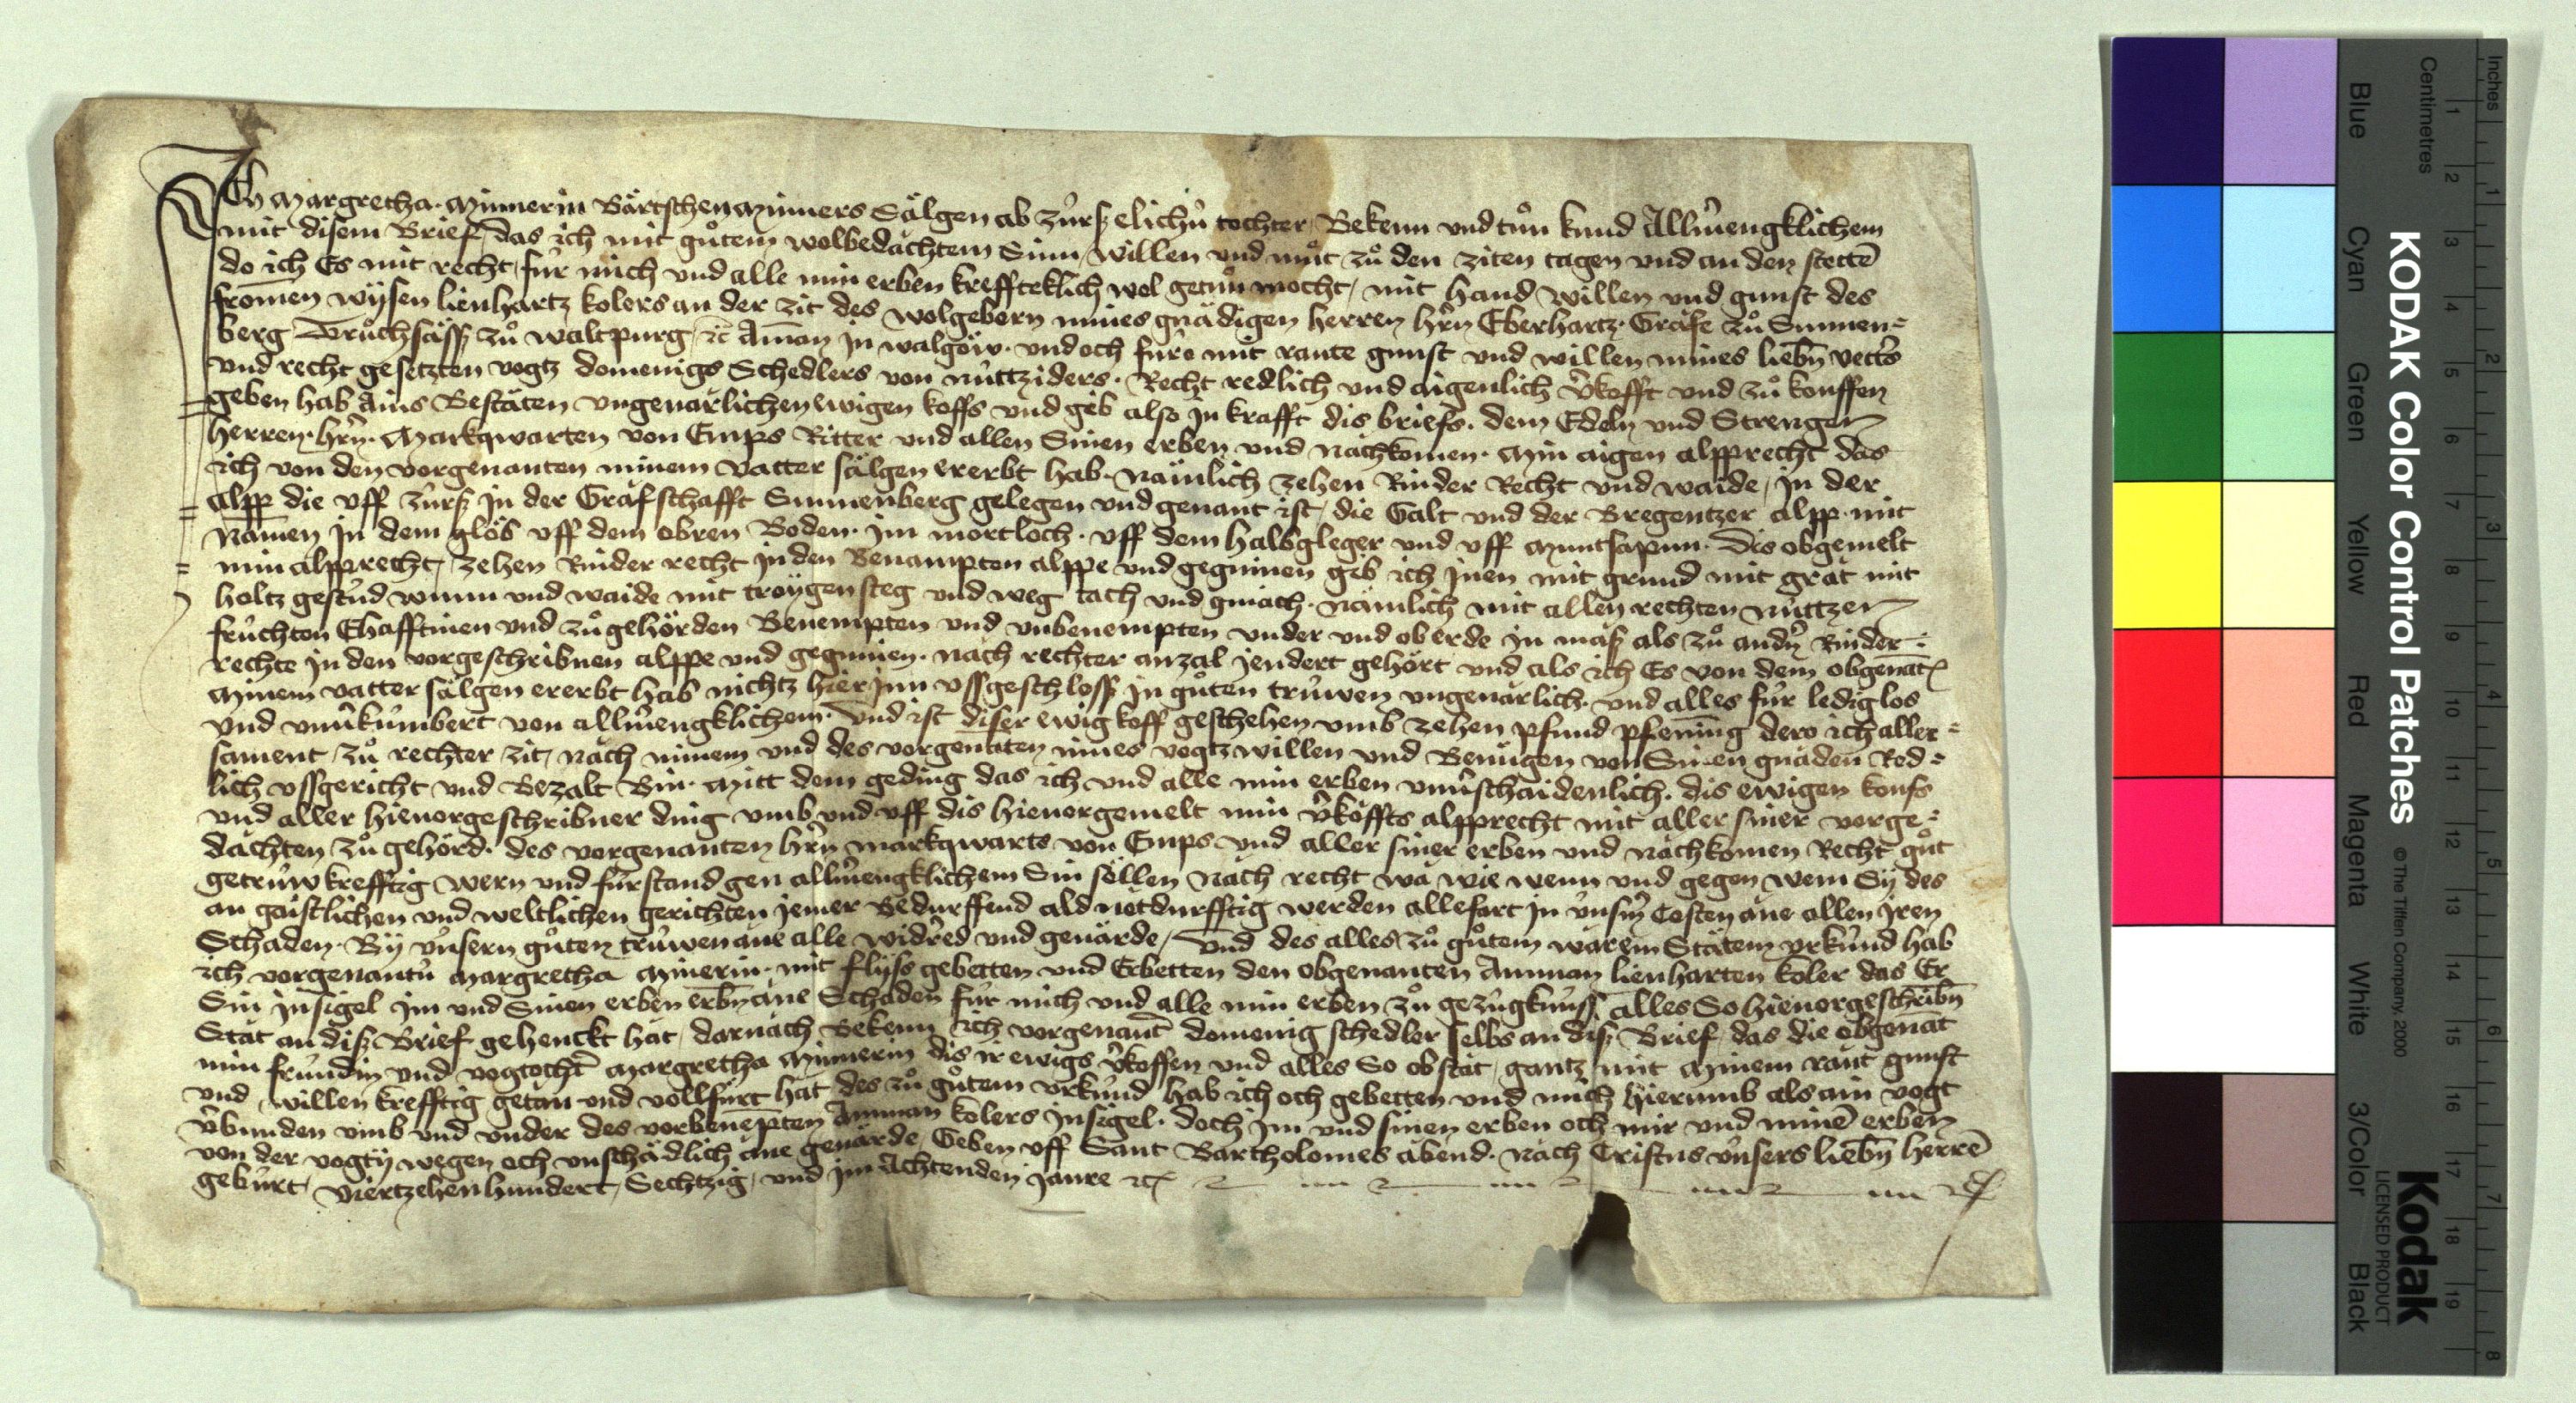 Ich Margretha Minnerin Bärtschen Minners Sälgen ab Zürß elichü tochter Bekenn und tůn kund Allmengklichem
mit disem Brief, das ich mit gůtem wolbedächtem Sinn, willen und můt zů den ziten tagen und an den stettē
do ich Es mit recht, für mich und alle min erben kreffteklich wol getůn mocht, mit hand willen und gunst des
fromen wÿsen lienhartz kolers an der zit des wolgebern mines gnädigen herren hrn Eberhartz Gräfe zů Sunnen=
berg Trůchsäss zů waltpurg, ꝛc Aman in walgöw. und och füro mit raute gunst und willen mines liebn vetters
und recht gesetzten vogtz domenigs Schedlers von nüttziders. Recht redlich und aigenlich vkofft und zů kouffen
geben hab Ains Bestäten ungeuarlichen ewigen koffs und gib also in krafft dis briefs. dem Edeln und Strengen
herren hrn. Markqwarten von Emps Ritter und allen Sinen erben und nächkomen. Min aigen alpprecht das
ich von den vorgenanten minem vatter sälgen ererbt hab. Nämlich zehen Rinder Recht und waide, in der
alpp die uff zürß in der Gräfschafft Sunnenberg gelegen und genant ist, die Galt und der Bregentzer alpp mit
Namen in dem glös uff dem obren Boden. im mortloch. uff dem halsgleger und uff Muntsapun. Dis obgemelt
min alpprecht, zehen Rinder recht in den Benampten alppe und geginnen gib ich inen mit grund mit grät mit
holtz gestüd wunn und waide mit tröÿgen steg und weg tach und gmach. Nämlich mit allen rechten nüttzen
früchten Ehafftinen und zůgehörden Benempten und unbenempten under und ob erde in maß als zů andn Rinder=
rechte in den vorgeschribnen alppe und geginnen. nach rechter anzal jendert gehört und als ich Es von dem obgenāt
Minem vatter sälgen ererbt hab nichtz hierinn ussgeschloss in gůten trüwen ungeuarlich. und alles für ledig los
und unukümbert von allmengklichem. Und ist diser ewig koff geschehen umb zehen pfund pfening dero ich aller=
sament, zů rechter zit, nach minem und des vorgenāten mines vogtz willen und Benügen von Sinen gnäden Red=
lich ussgericht und Bezalt Bin. Mitt dem geding das ich und alle min erben unuschaidenlich. dis ewigen koufs
und aller hieuorgeschribner ding umb und uff dis hieuorgemelt min vkoffts alpprecht mit aller siner vorge=
dächten zůgehörd. des vorgenanten hrn markqwarts von Emps und aller siner erben und nächkomen Recht gůt
getrüw krefftig wern und fürstand gen allmengklichem Sin söllen Näch recht wa wie wenn und gegen wem Sÿ des
an gaistlichen und weltlichen gerichten jemer Bedurffend ald notdurfftig werden allefart in ünsm Costen äne allen jren
Schaden. Bÿ ünsern gůten trüwen äne alle widred und geuärde, Und des alles zů gůtem wärem Stätem urkünd hab
ich vorgenantü Margretha Minerin. mit flÿss gebetten und Erbetten den obgenanten Amman lienharten koler das Er
Sin insigel im und Sinen erben erbn äne Schaden für mich und alle min erben zů gezügknüss alles So hieuorgeschribn
Stät an diß Brief gehenckt hät, darnäch Bekenn ich vorgenant domenig schedler selbs an diß Brief, das die obgenāt
min fründin und vogtocht Margretha Minnerin dis ir ewigs vkoffen und alles So obstät, gantz mit Minem raut gunst
und willen krefftig getän und vollfürt hät des zů gůtem urkünd hab ich och gebetten und mich hierumb als ain vogt
vbunden umb und under des vorbenēpten Amman kolers insigel. doch im und sinen erben och mir und minē erben
von der vogtÿ wegen och unschädlich äne geuärde, Geben uff Sant Bartholomes äbend. näch Cristus ünsers liebn herrē
gebürt, viertzehenhundert, Sechtzig, und im Achtenden jaure ꝛc
KODAK Color Control Patches
© The Tiffen Company, 2000
Kodak
LICENSED PRODUCT
Blue Cyan Green Yellow Red Magenta White 3/Color Black
Centimetres 1 2 3 4 5 6 7 8 9 10 11 12 13 14 15 16 17 18 19
Inches 1 2 3 4 5 6 7 8